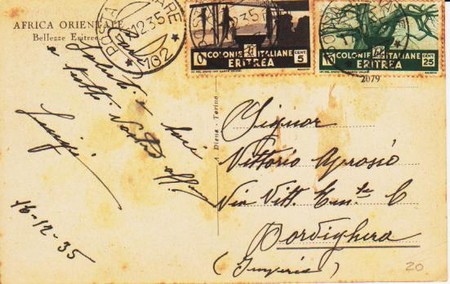 AFRICA ORIENTALE
Bellezze Eritree
POSTA MILITARE
12.35
102
COLONIE ITALIANE
ERITREA
CENT 5
COLONIE ITALIANE
ERITREA
CENT 25
2079
Saluti e baci
a tutti
Luigi
16-12-35
Signor
Vittorio Aprosio
Via Vitt. Em
Bordighera
(Imperia)
20